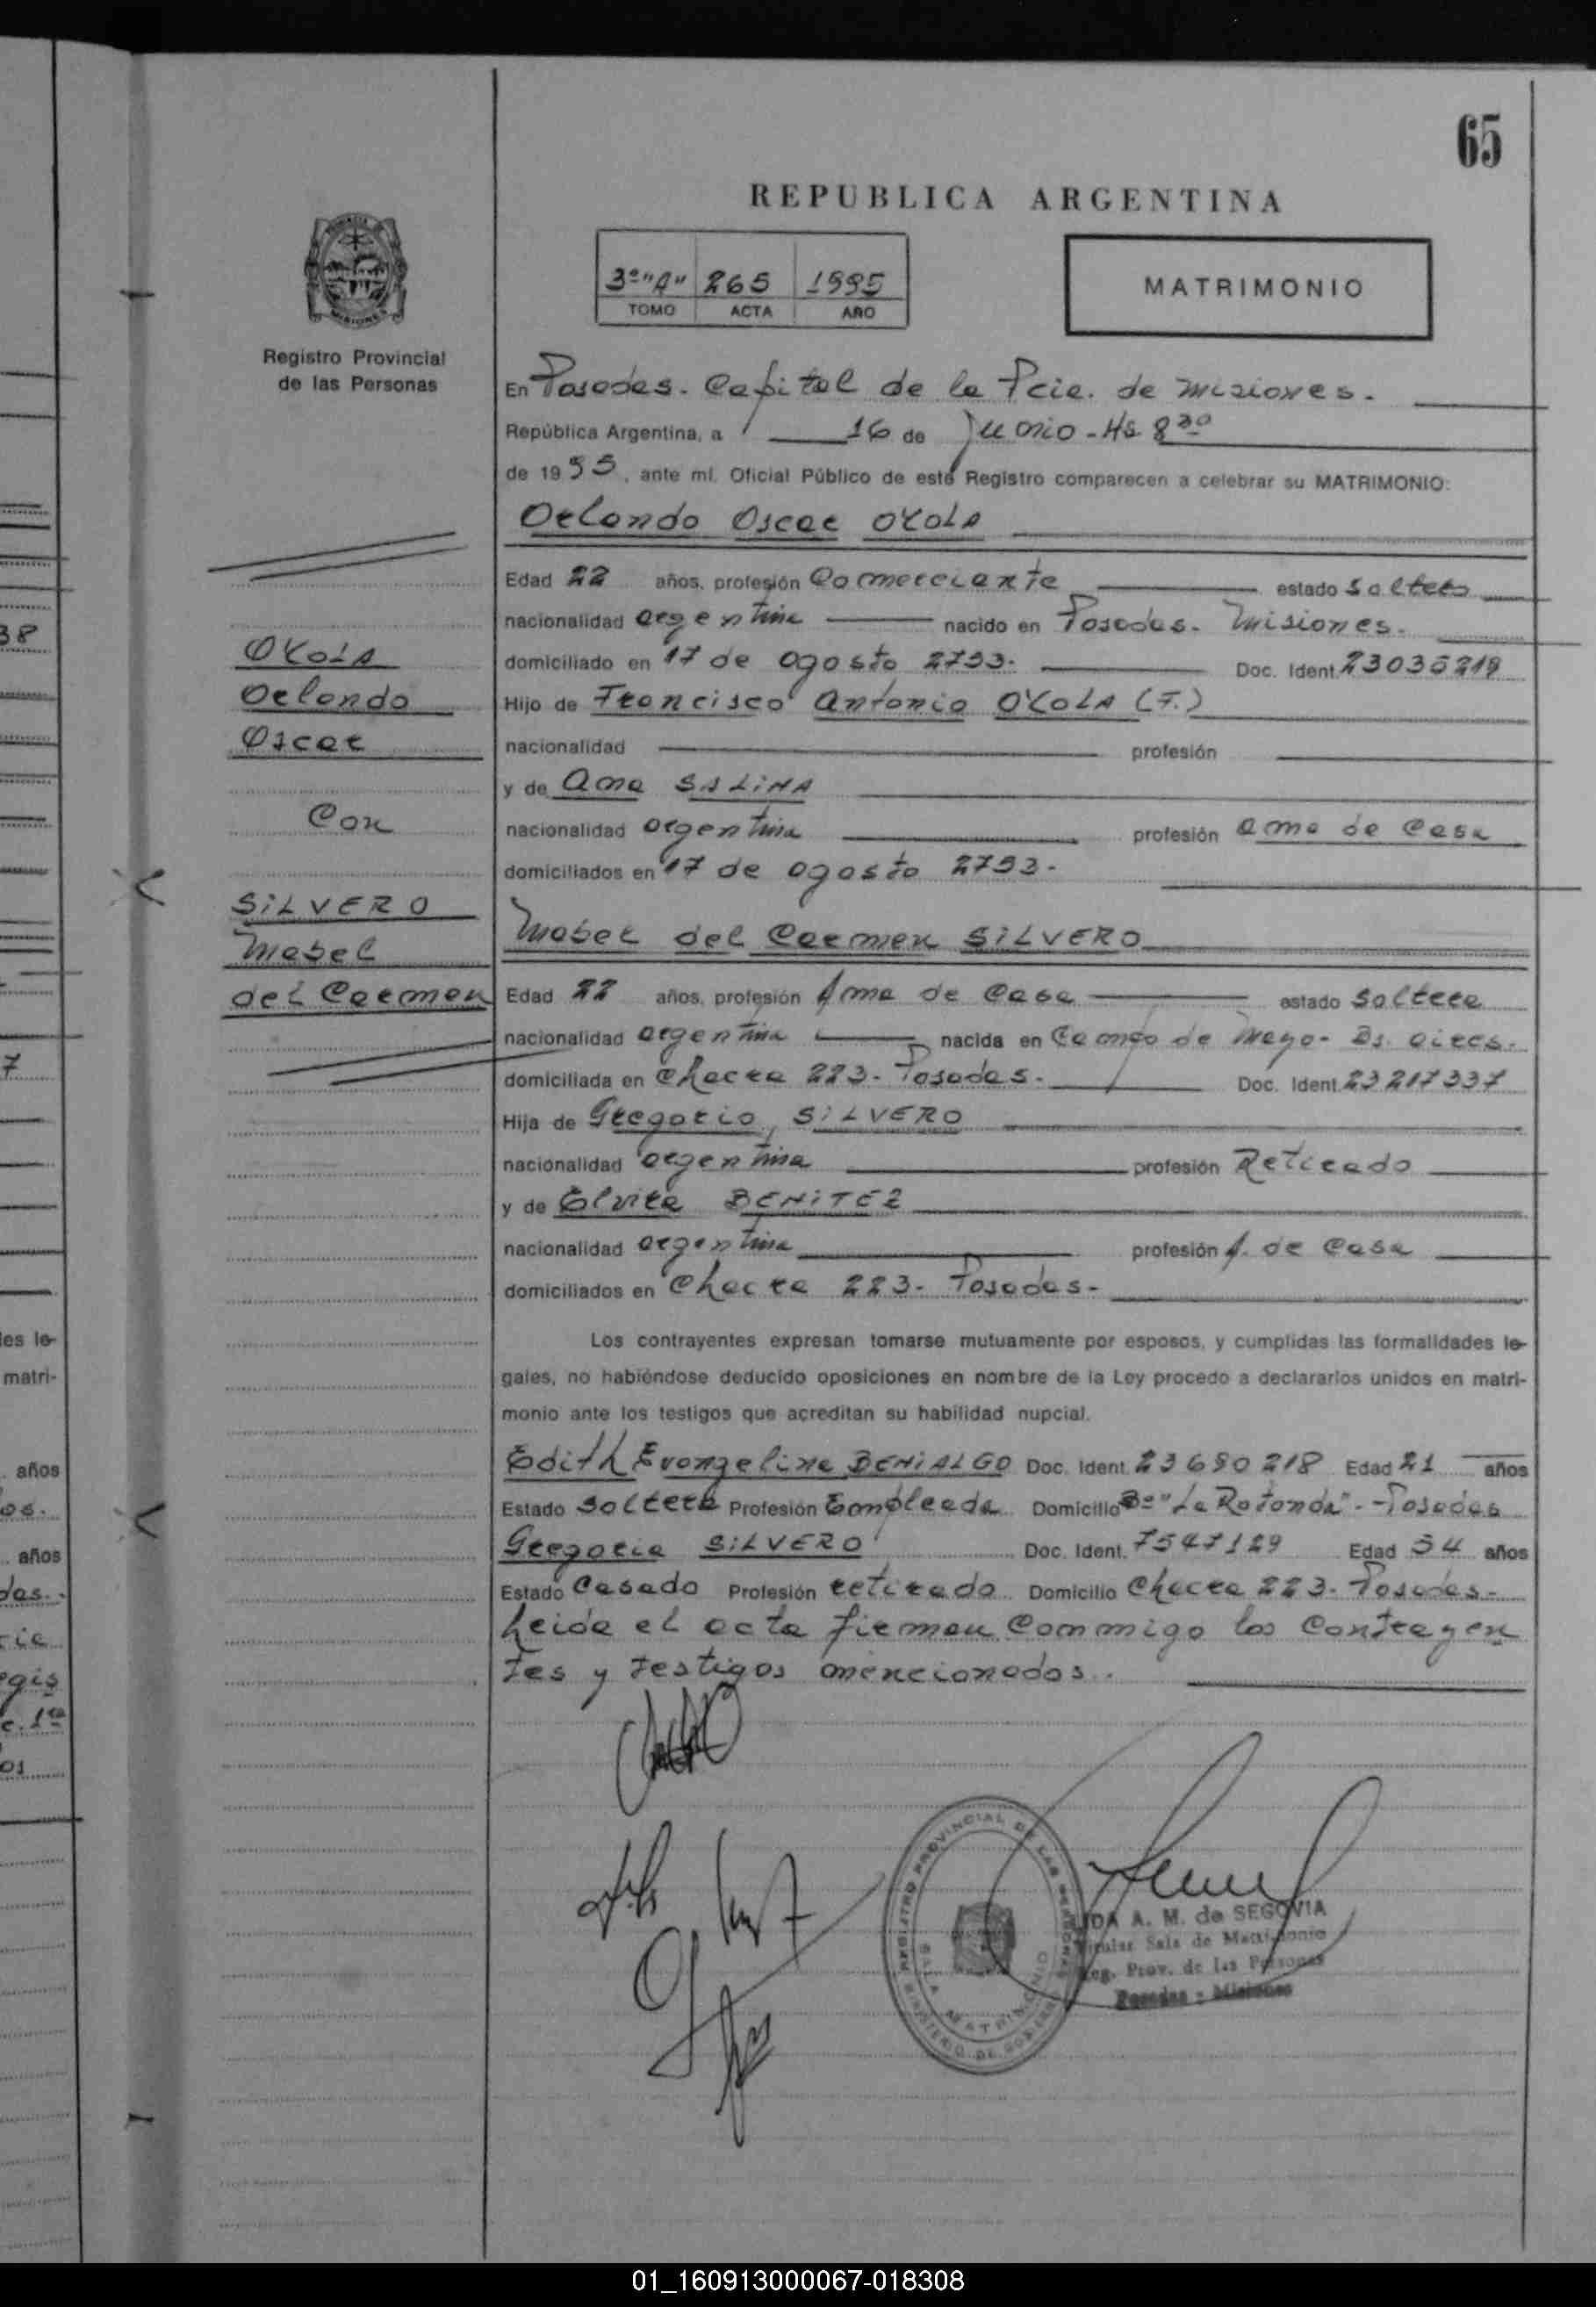 65
REPUBLICA ARGENTINA
3º "A" 265 1995
TOMO ACTA AÑO
MATRIMONIO
Registro Provincial
de las Personas
En Posadas. Capital de la Pcia. de Misiones.
República Argentina, a 16 de Junio - Hs 8 30
de 1995, ante mí, Oficial Público de este Registro comparecen a celebrar su MATRIMONIO:
Orlando Oscar OYOLA
Edad 22 años, profesión Comerciante estado soltero
nacionalidad argentina nacido en Posadas. Misiones.
domiciliado en 17 de agosto 2793. Doc. Ident. 23035219
Hijo de Francisco Antonio OYOLA (F.)
nacionalidad profesión
y de Ana SALINA
nacionalidad argentina profesión ama de Casa
domiciliados en 17 de agosto 2793.
Mabel del Carmen SILVERO
Edad 22 años, profesión Ama de Casa estado soltera
nacionalidad argentina nacida en Campo de Mayo - Bs. aires.
domiciliada en Chacra 223. Posadas. Doc. Ident. 23217337
Hija de Gregorio SILVERO
nacionalidad argentina profesión Retirado
y de Elvira BENITEZ
nacionalidad argentina profesión A. de Casa
domiciliados en Chacra 223. Posadas.
Los contrayentes expresan tomarse mutuamente por esposos, y cumplidas las formalidades le-
gales, no habiéndose deducido oposiciones en nombre de la Ley procedo a declararlos unidos en matri-
monio ante los testigos que acreditan su habilidad nupcial.
Edith Evangelina BENIALGO Doc. Ident. 23690218 Edad 21 años
Estado soltera Profesión Empleada Domicilio Bº "La Rotonda" - Posadas
Gregorio SILVERO Doc. Ident. 7547129 Edad 54 años
Estado Casado Profesión retirado Domicilio Chacra 223. Posadas.
Leida el acta firman Conmigo los Contrayen
tes y testigos mencionados.
OYOLA
Orlando
Oscar
Con
SILVERO
Mabel
del Carmen
REGISTRO PROVINCIAL DE LAS PERSONAS
SALA MATRIMONIO
MINISTERIO DE GOBIERNO
A. M. de SEGOVIA
Titular Sala de Matrimonio
Reg. Prov. de las Personas
Posadas - Misiones
les le-
matri-
años
años
01_160913000067-018308